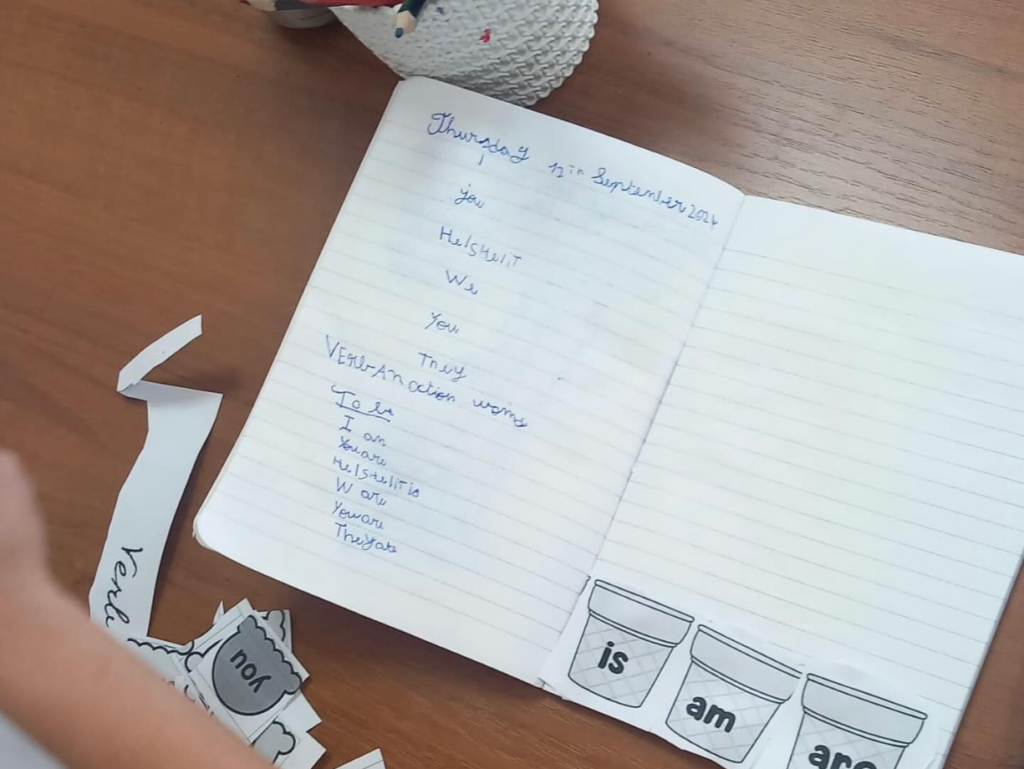 Thursday 12th September 2024
I
you
He/SHe/iT
We
You
They
VERb-AN action word
To be
I am
You are
He/SHe/iT is
W are
You are
They are
Verb
you
is
am
are